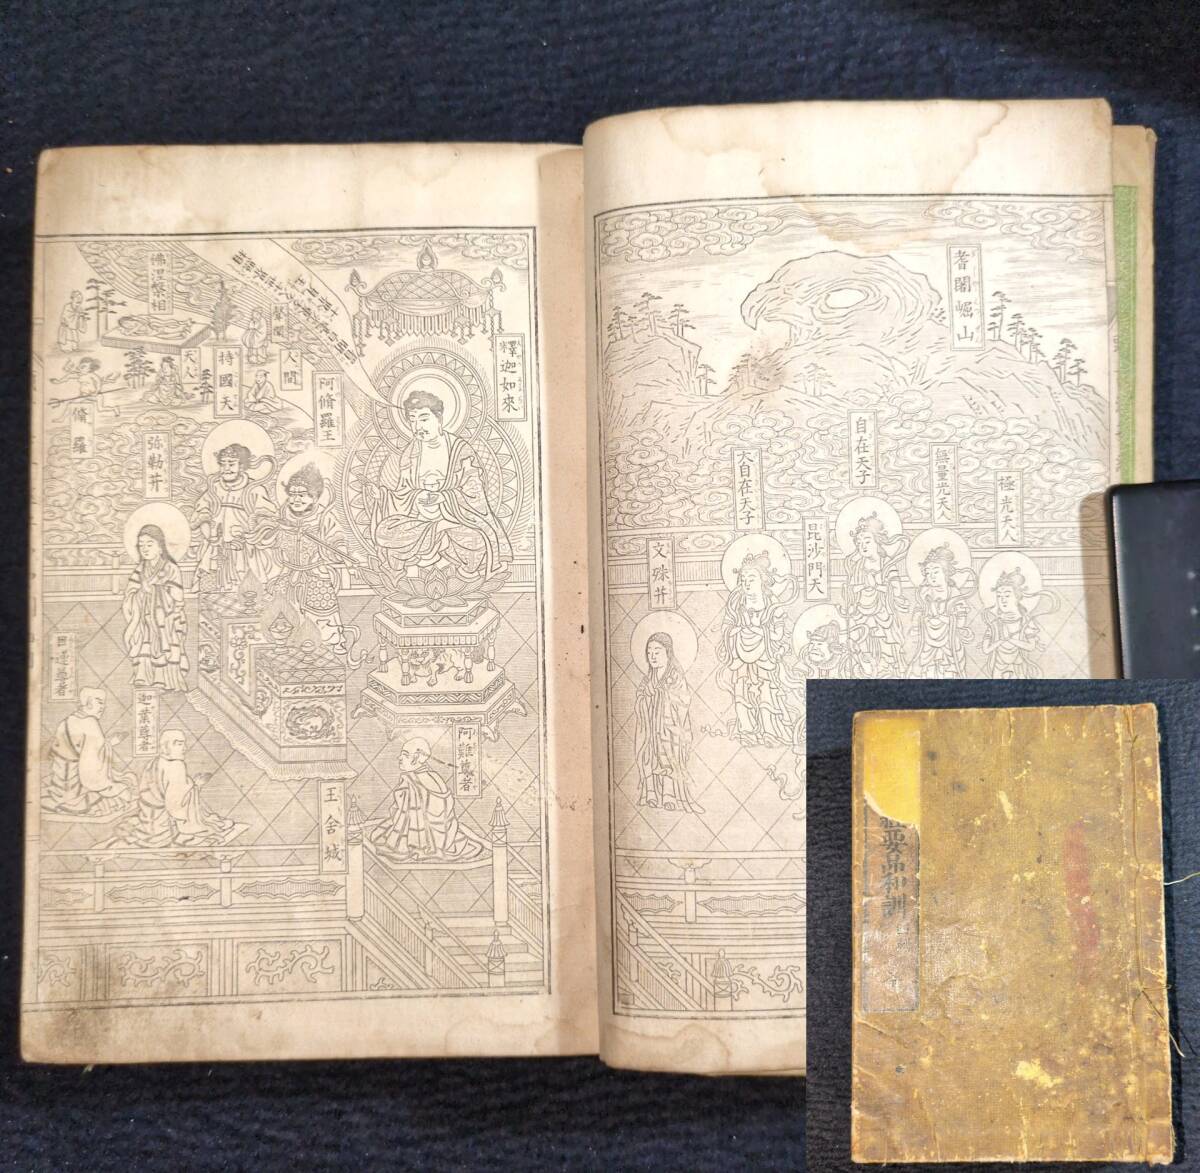 耆闍崛山
極光天人
無量光天人
自在天子
毘沙門天
大自在天子
文殊𦬇
釋迦如來
阿脩羅王
人間
聲聞
持國天
天人
佛涅槃相
脩羅
弥勒𦬇
目連尊者
迦葉尊者
阿難尊者
王舍城
要品和訓